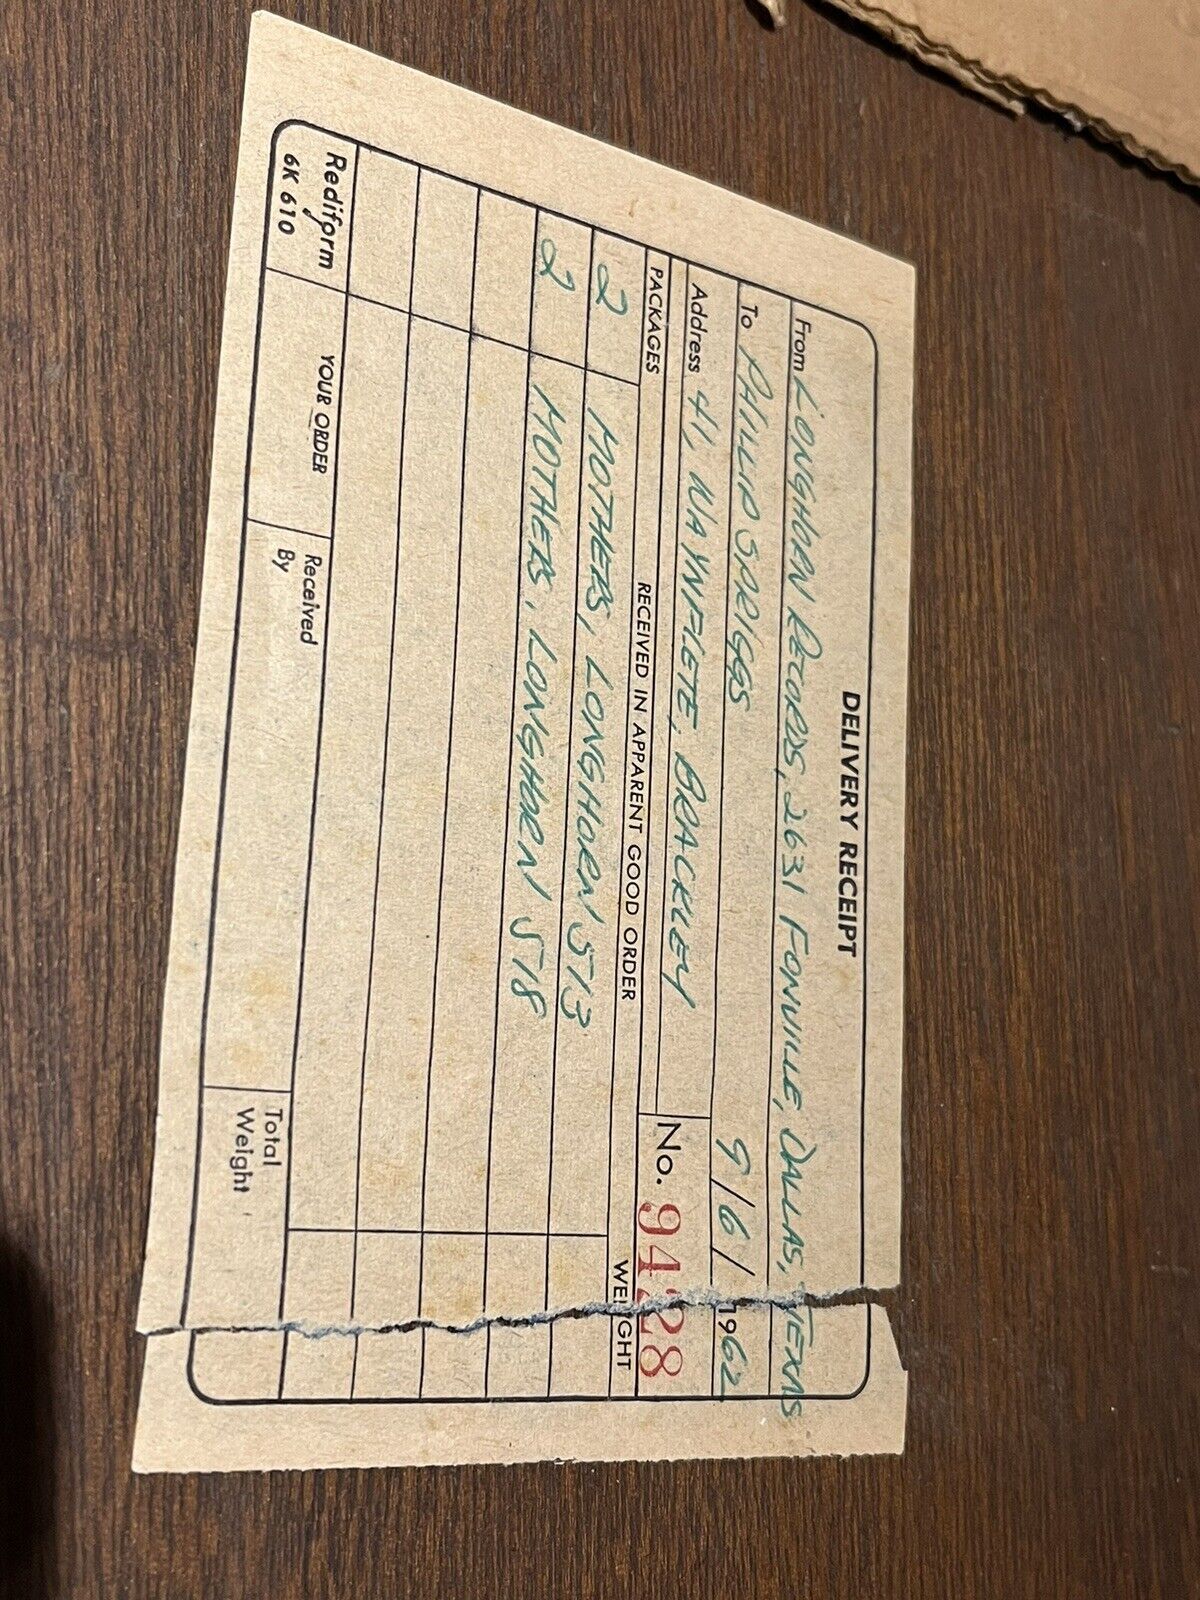 DELIVERY RECEIPT
From LONGHORN RECORDS, 2631 FONVILLE, DALLAS, TEXAS
To PHILLIP SPRIGGS 9/6/1962
Address 41, WAYNFLETE, BRACKLEY
No. 9428
PACKAGES RECEIVED IN APPARENT GOOD ORDER WEIGHT
2 MOTHERS, LONGHORN 513
2 MOTHERS, LONGHORN 518
Rediform
6K 610
YOUR ORDER
Received
By
Total
Weight